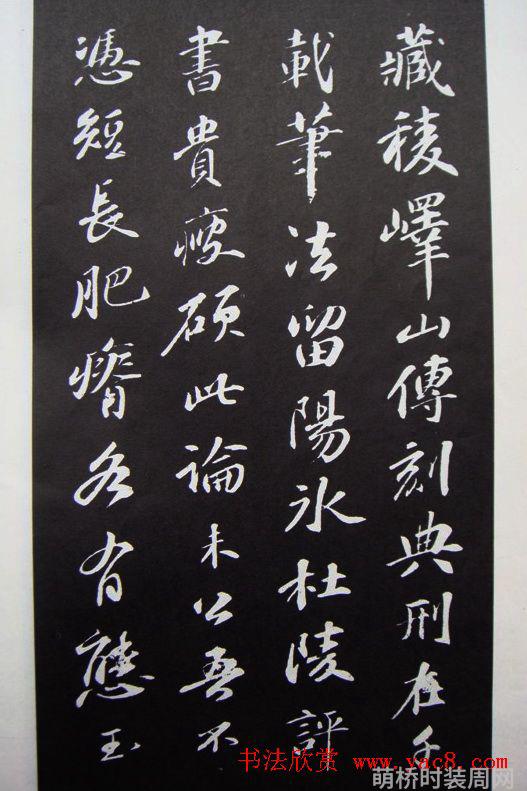 藏稜嶧山傳刻典刑在千
載筆法留陽冰杜陵評
書貴瘦硬此論未公吾不
憑短長肥瘠各有態玉
书法欣赏 www.yac8.com
萌桥时装周网